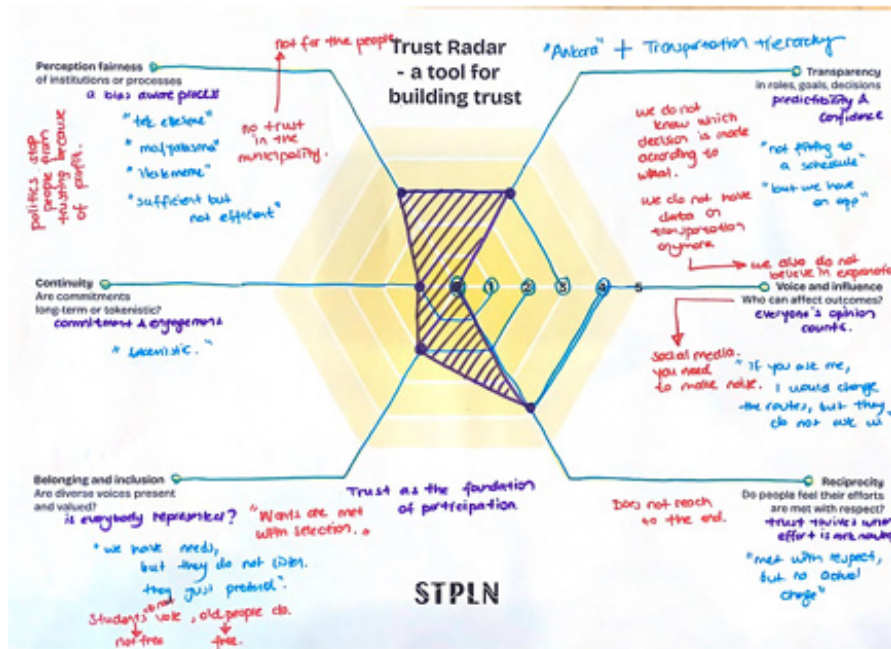 not for the people
Trust Radar
- a tool for
building trust
"Ankara" + Transportation Hierarchy
Perception fairness
of institutions or processes
a bias aware process
"tek elleme"
"sufficient but
not efficient"
politics stop
people from
trusting because
of profit.
no trust
in the
municipality.
Transparency
in roles, goals, decisions
predictibility &
confidence
"not fitting to
a schedule"
"but we have
an app"
we do not
know which
decision is made
according to
what.
we do not have
data on
transportation
anymore
we also do not
believe in
Continuity
Are commitments
long-term or tokenistic?
commitment & engagement
"tokenistic."
0 1 2 3 4 5
Voice and influence
Who can affect outcomes?
everyone's opinion
counts.
social media.
you need
to make noise.
"If you ask me,
I would change
the routes, but they
do not ask
Belonging and inclusion
Are diverse voices present
and valued?
is everybody represented?
"Wants are met
with selection."
"we have needs,
but they do not listen.
they just pretend".
Students do not vote, old people do.
not free
free.
Trust as the foundation
of participation.
STPLN
Does not reach
to the end.
Reciprocity
Do people feel their efforts
are met with respect?
trust thrives when
effort is
"met with respect,
but no actual
change"